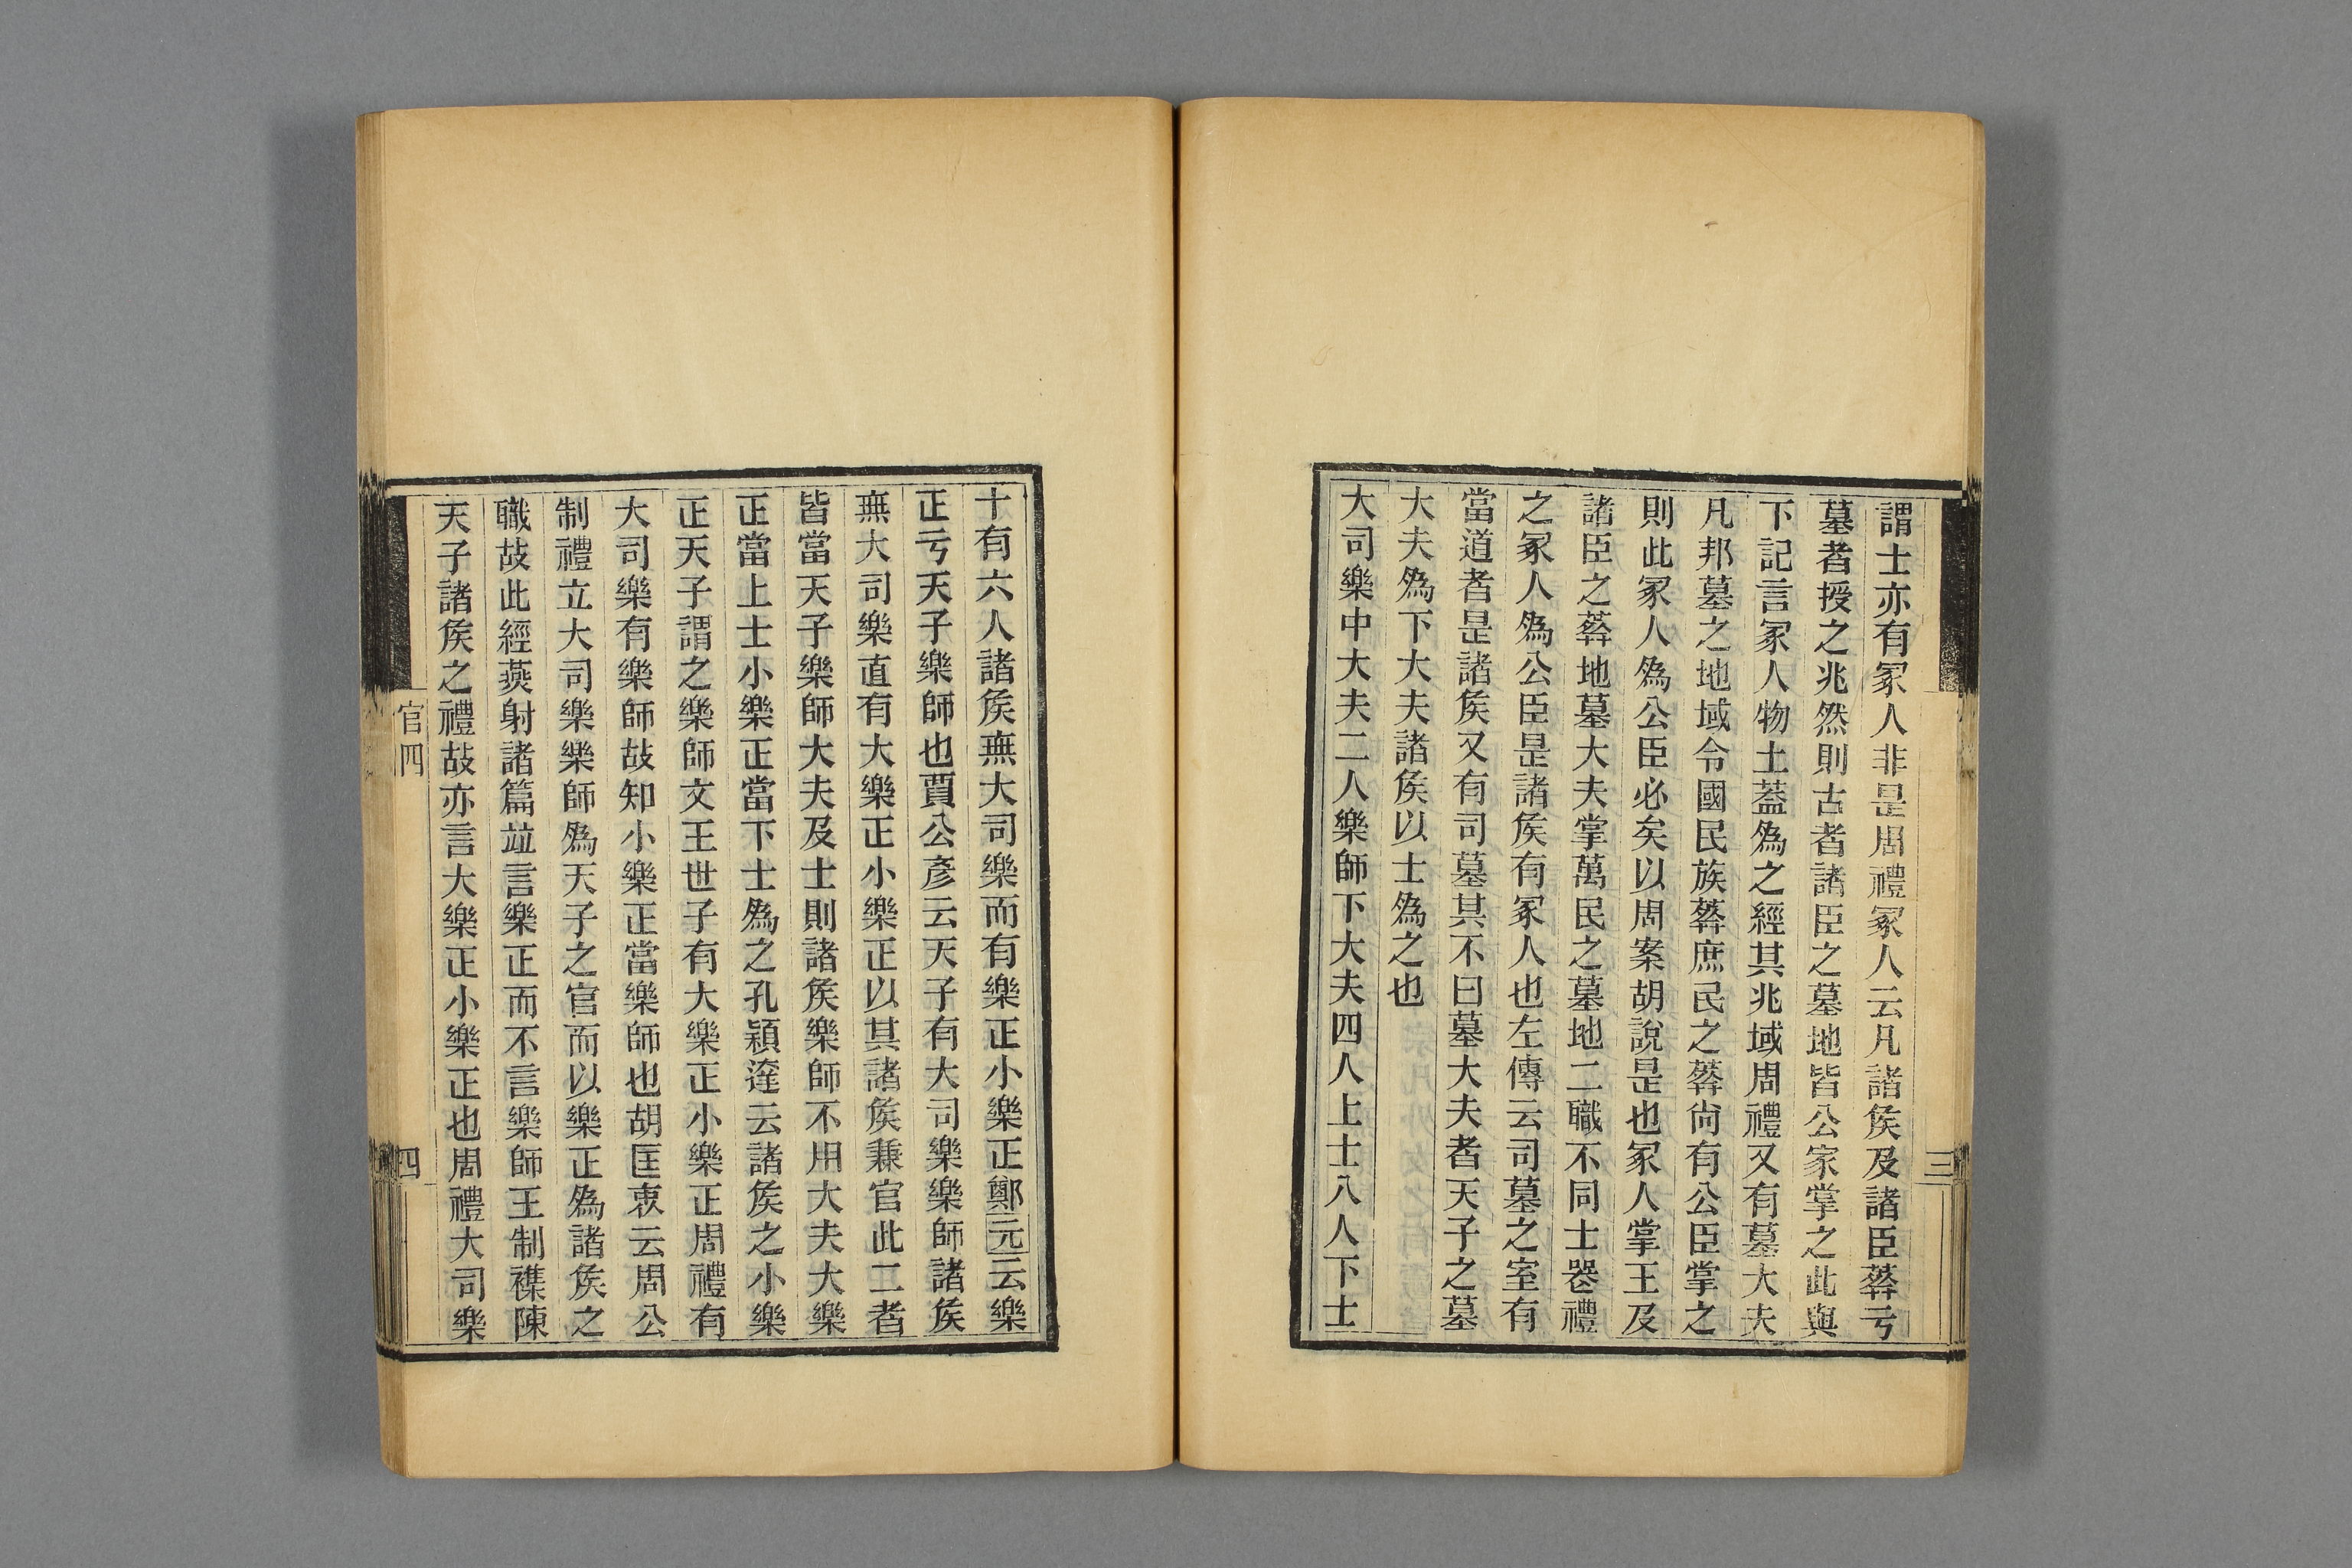 謂士亦有冢人非是周禮冢人云凡諸矦及諸臣葬亏
墓者授之兆然則古者諸臣之墓地皆公家掌之此與
下記言冢人物土蓋爲之經其兆域周禮又有墓大夫
凡邦墓之地域令國民族葬庶民之葬尙有公臣掌之
則此冢人爲公臣必矣以周案胡說是也冢人掌王及
諸臣之葬地墓大夫掌萬民之墓地二職不同士喪禮
之冢人爲公臣是諸矦有冢人也左傳云司墓之室有
當道者是諸矦又有司墓其不曰墓大夫者天子之墓
大夫爲下大夫諸矦以士爲之也
大司樂中大夫二人樂師下大夫四人上士八人下士
三
十有六人諸矦無大司樂而有樂正小樂正鄭元云樂
正亏天子樂師也賈公彥云天子有大司樂樂師諸矦
無大司樂直有大樂正小樂正以其諸矦兼官此二者
皆當天子樂師大夫及士則諸矦樂師不用大夫大樂
正當上士小樂正當下士爲之孔穎達云諸矦之小樂
正天子謂之樂師文王世子有大樂正小樂正周禮有
大司樂有樂師故知小樂正當樂師也胡匡衷云周公
制禮立大司樂樂師爲天子之官而以樂正爲諸矦之
職故此經燕射諸篇竝言樂正而不言樂師王制襍陳
天子諸矦之禮故亦言大樂正小樂正也周禮大司樂
官四
四